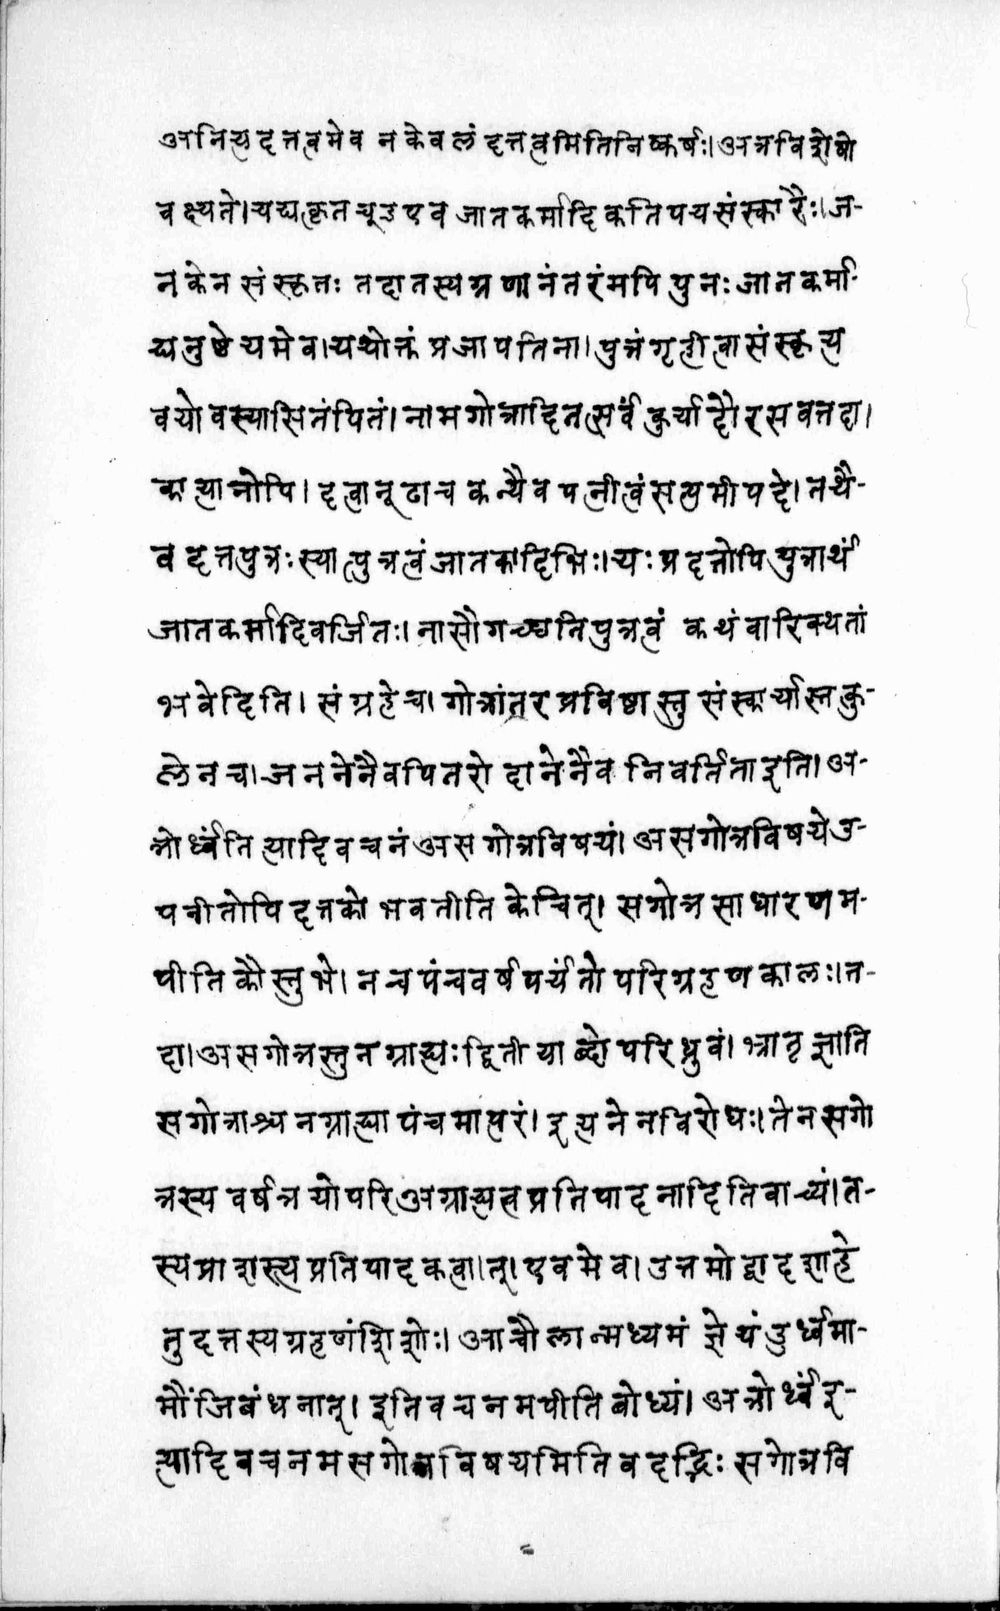 अनित्यदत्तत्वमेव न केवलं दत्तत्वमितिनिष्कर्षः।अत्रविशेषो
वक्ष्यते।यद्यकृतचूडएव जातकर्मादिकतिपयसंस्कारैः।ज-
नकेन संस्कृतः तदातस्यग्रणानंतरंमपि पुनः जातकर्मा-
द्यनुष्ठेयमेव।यथोक्तं प्रजापतिना। पुत्रंगृहीत्वासंस्कृत्य
वयोवस्थासितंपितं। नामगोत्रादितत्सर्वं कुर्यादौरसवत्तदा।
कात्यानोपि। दत्वानूढाच कन्यैव पत्नीत्वंसप्तमीपदे। तथै-
व दत्तपुत्रः स्यात्पुत्रत्वंजातकादिभिः।यः प्रदत्तोपि पुत्रार्थं
जातकर्मादिवर्जितः। नासौगच्छतिपुत्रत्वं कथं वारिक्थतां
भवेदिति। संग्रहेच। गोत्रांतरप्रविष्ठास्तु संस्कार्यास्तकु-
लेनच।जननेनैवपितरो दानेनैव निवर्तिताइति।अ-
त्रोर्ध्वंतित्यादिवचनंअसगोत्रविषयं।असगोत्रविषयेउ-
पनीतोपिदत्तको भवतीति केचित्। सगोत्रसाधारणम-
पीति कौस्तुभे। नन्वपंचवर्षपर्यंतो परिग्रहणकालः।त-
दा।असगोत्रस्तुनग्राह्यः द्वितीयाब्दोपरिध्रुवं। भ्रातृज्ञाति
सगोत्राश्चनग्राह्या पंचमात्परं। इत्यनेनविरोधः।तेनसगो
त्रस्य वर्षत्रयोपरिअग्राह्यत्वप्रतिपादनादितिवाच्यं।त-
स्यप्राशस्त्यप्रतिपादकत्वा।त्। एवमेव। उत्तमोद्वादशाहे
तुदत्तस्यग्रहणंशिशोः। आचौलान्मध्यमं ज्ञेयं उर्ध्वमा-
मौंजिबंधनात्। इतिवचनमपीतिबोध्यं। अत्रोर्ध्वंइ-
त्यादिवचनमसगोत्रविषयमितिवदद्भिः सगोत्रवि